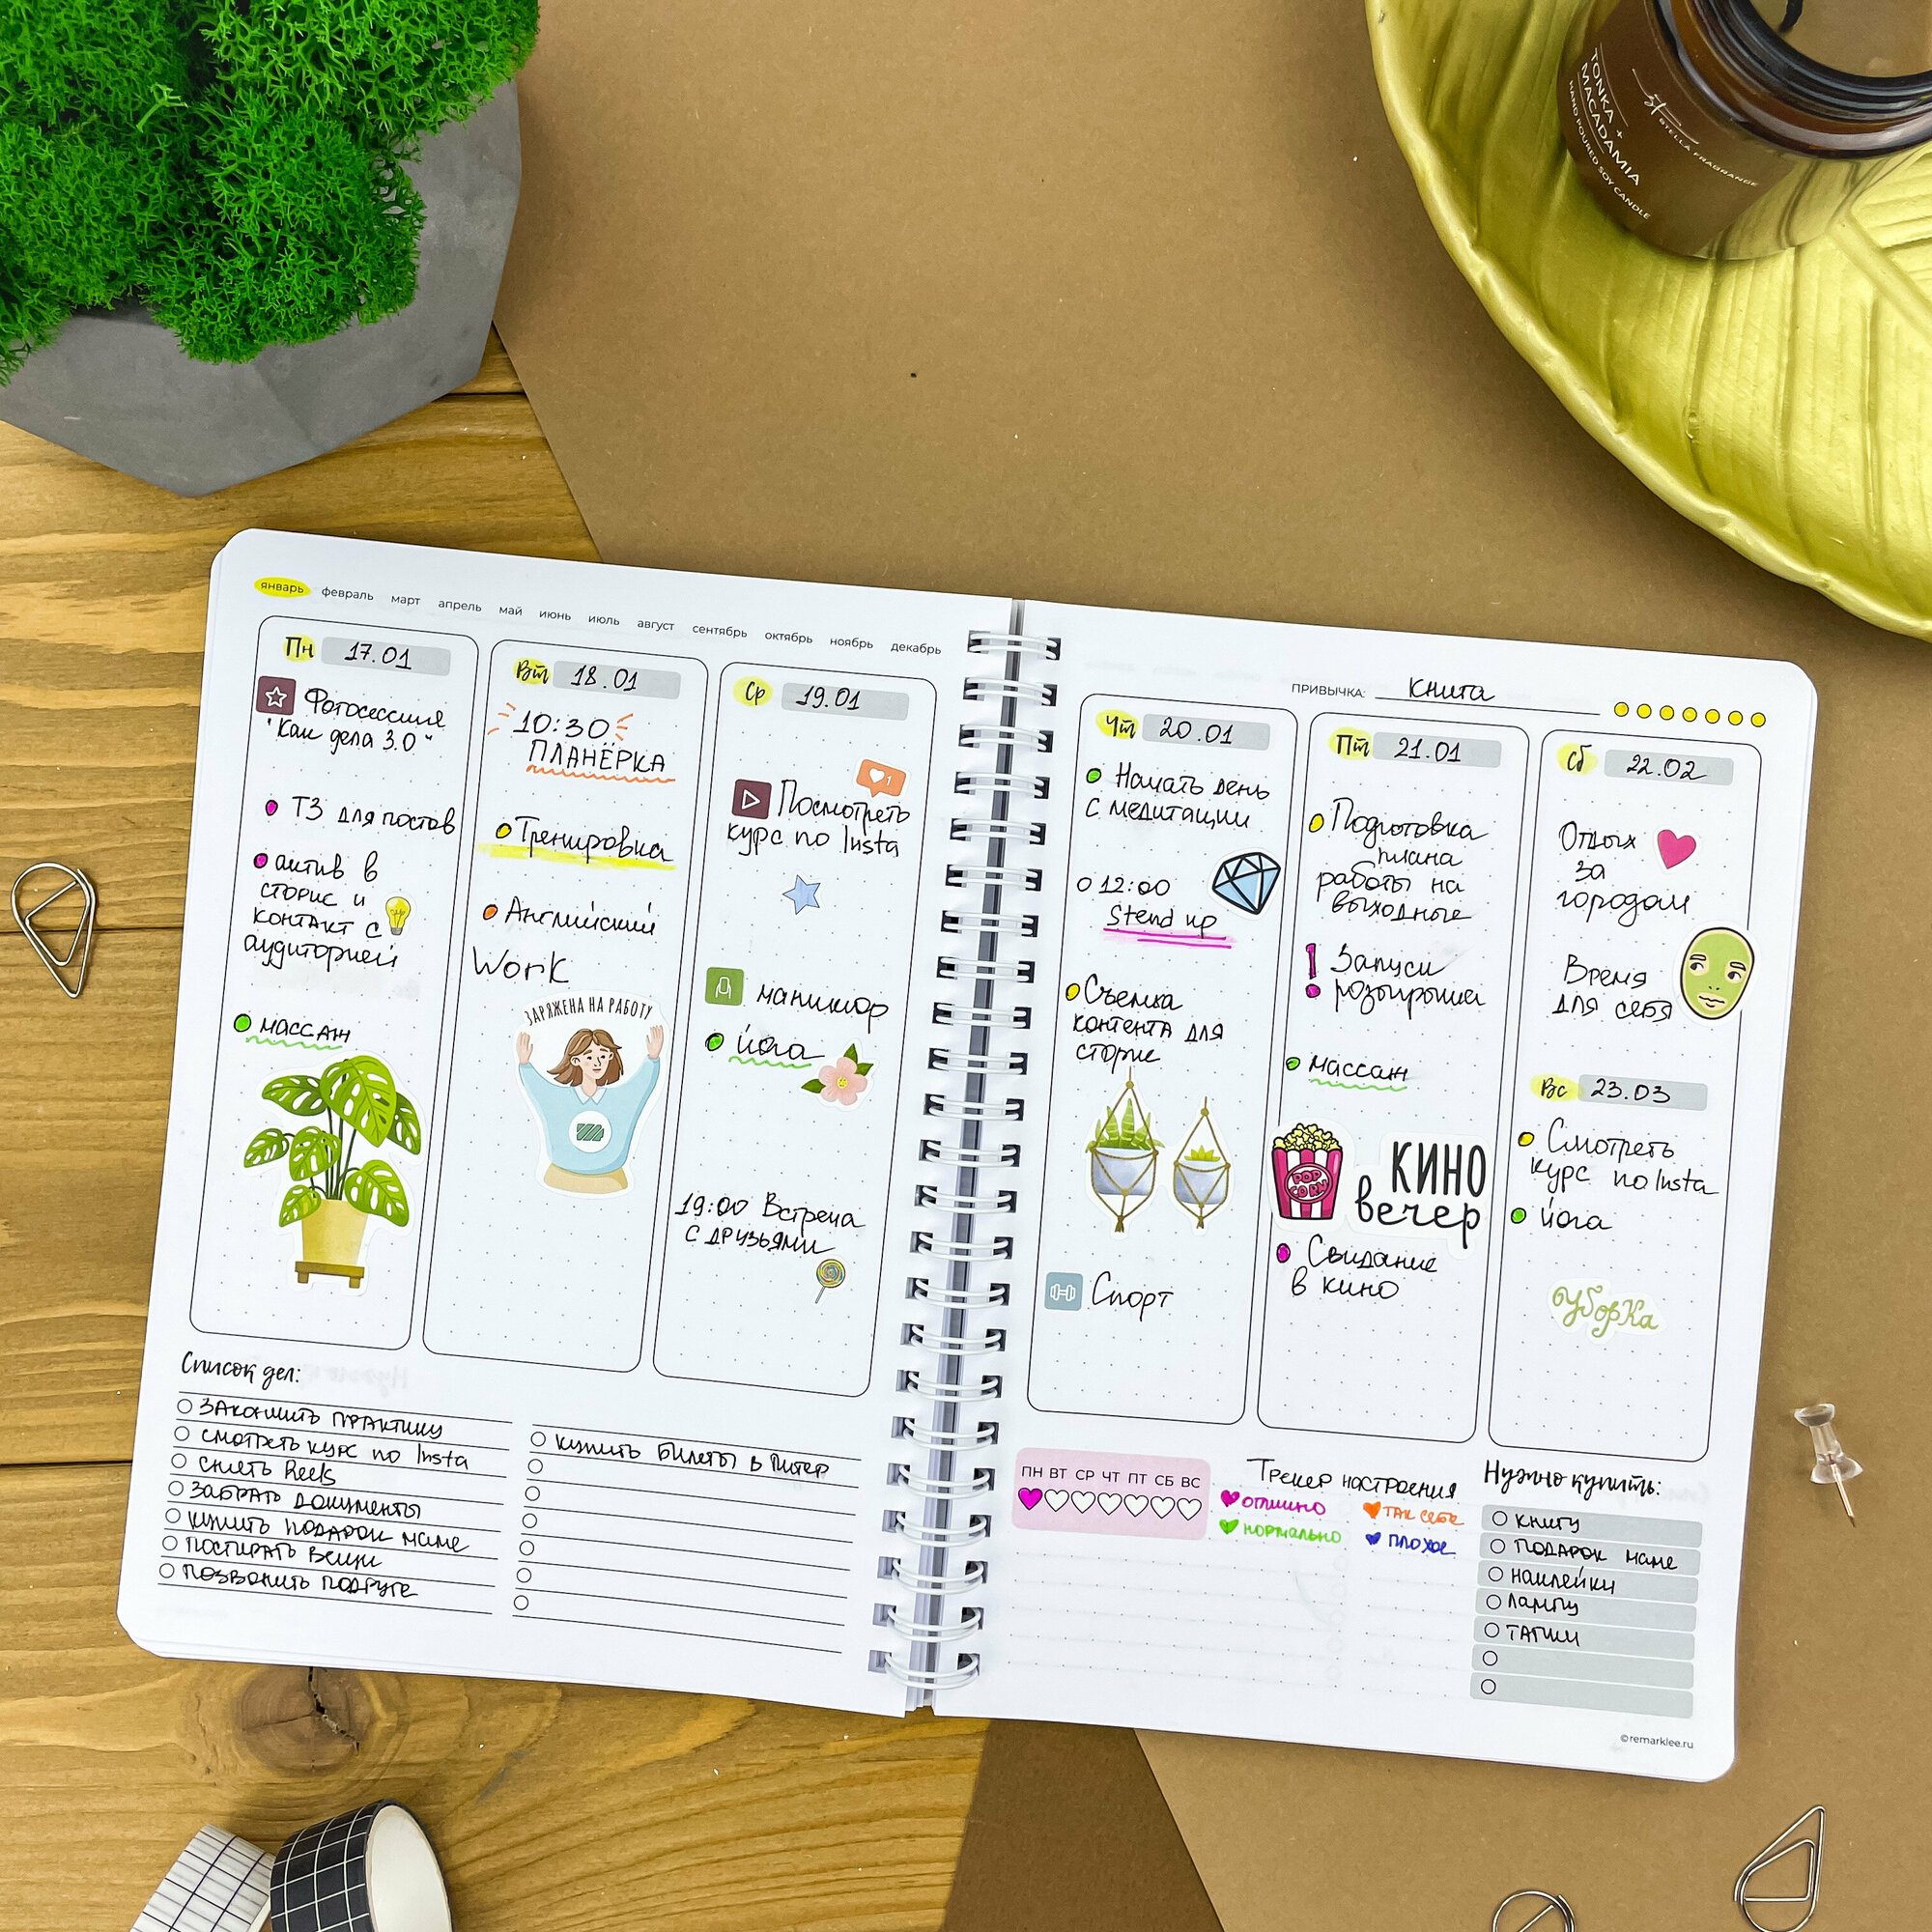 TONKA +
MACADAMIA
HAND POURED SOY CANDLE
STELLA FRAGRANCE
январь февраль март апрель май июнь июль август сентябрь октябрь ноябрь декабрь
Пн 17.01
Фотосессия
"Как дела 3.0"
ТЗ для постов
актив в
сторис и
контакт с
аудиторией
массаж
Вт 18.01
10:30
ПЛАНЁРКА
Тренировка
Английский
Work
ЗАРЯЖЕНА НА РАБОТУ
Ср 19.01
1
Посмотреть
курс по Insta
маникюр
йога
19:00 Встреча
с друзьями
Список дел:
закончить практику
смотреть курс по Insta
снять Reels
забрать документы
купить подарок маме
постирать вещи
позвонить подруге
купить билеты в Питер
ПРИВЫЧКА: книга
Чт 20.01
Начать день
с медитации
12:00
Stend up
Съемка
контента для
сторис
Спорт
Пт 21.01
Подготовка
плана
работы на
выходные
Запуск
розыгрыша
массаж
POP
CORN
КИНО
вечер
Свидание
в кино
Сб 22.02
Отдых
за
городом
Время
для себя
Вс 23.03
Смотреть
курс по Insta
йога
уборка
ПН ВТ СР ЧТ ПТ СБ ВС
Трекер настроения
отлично так себе
нормально плохое
Нужно купить:
книгу
подарок маме
наклейки
лампу
тапки
©remarklee.ru